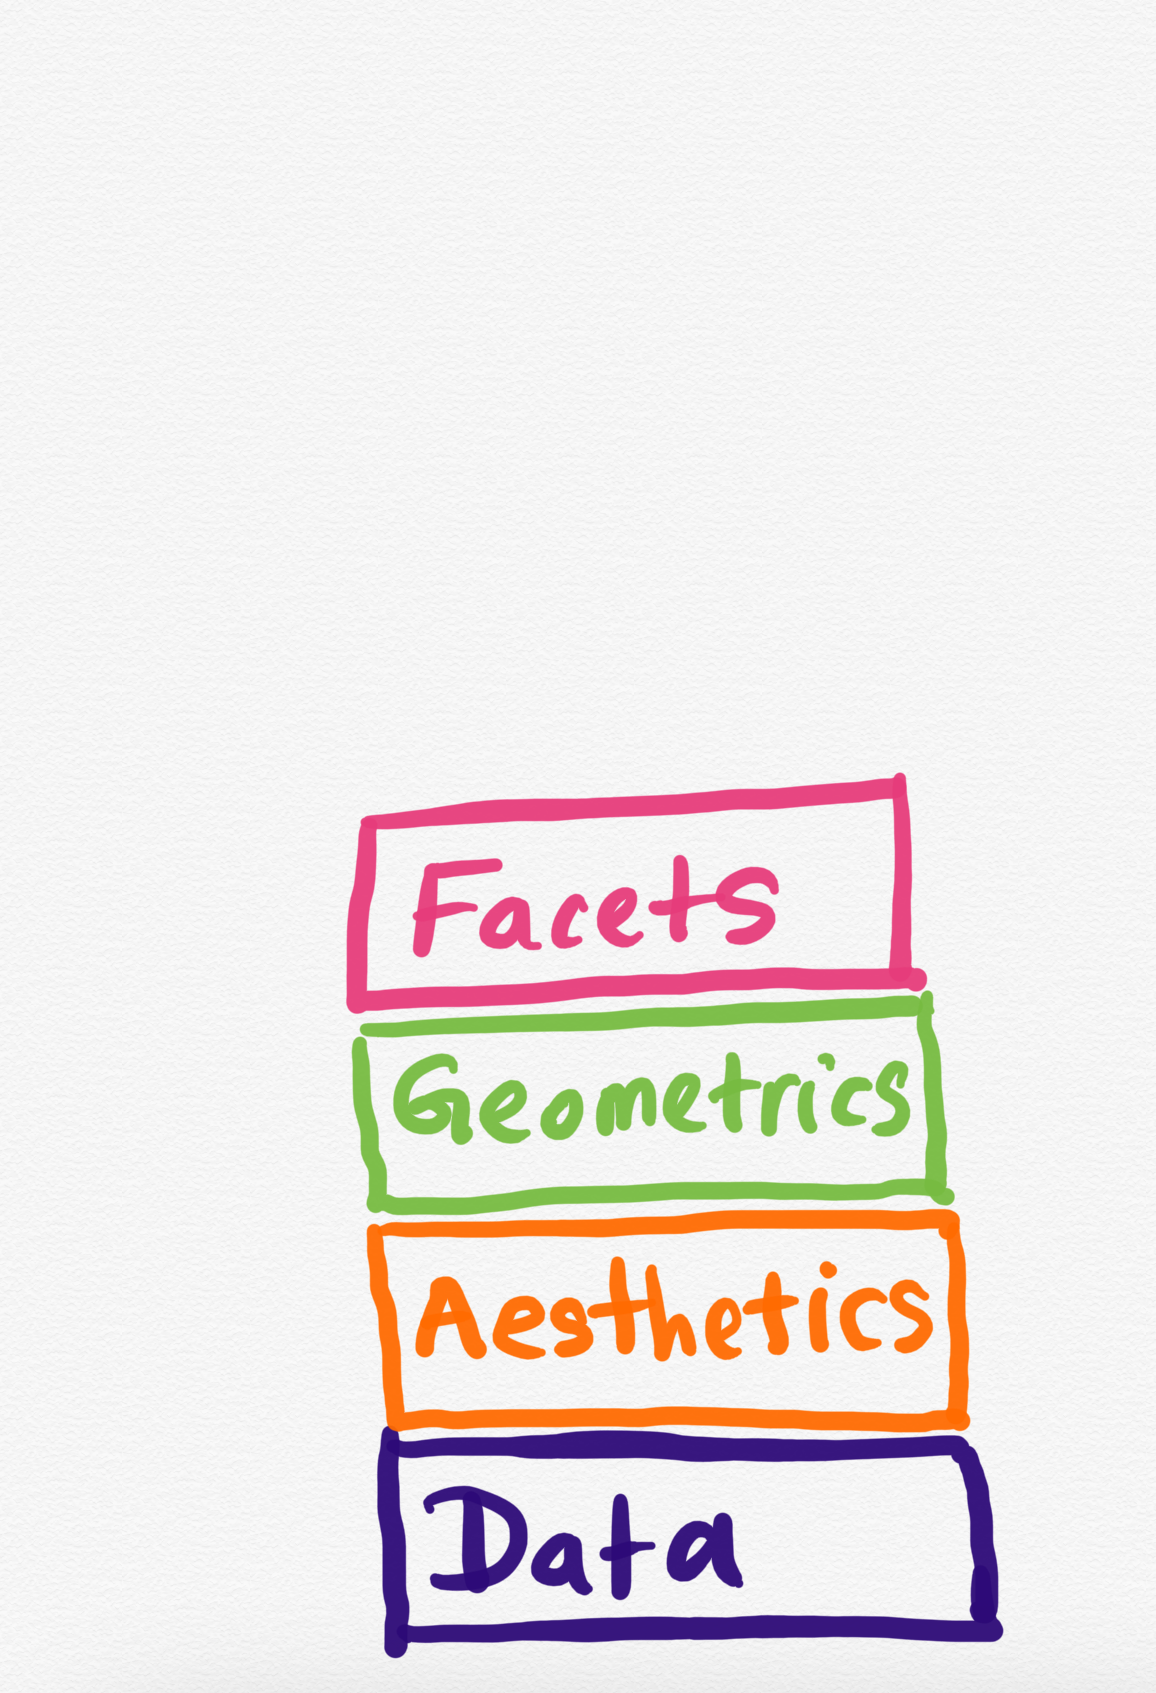 Facets
Geometrics
Aesthetics
Data